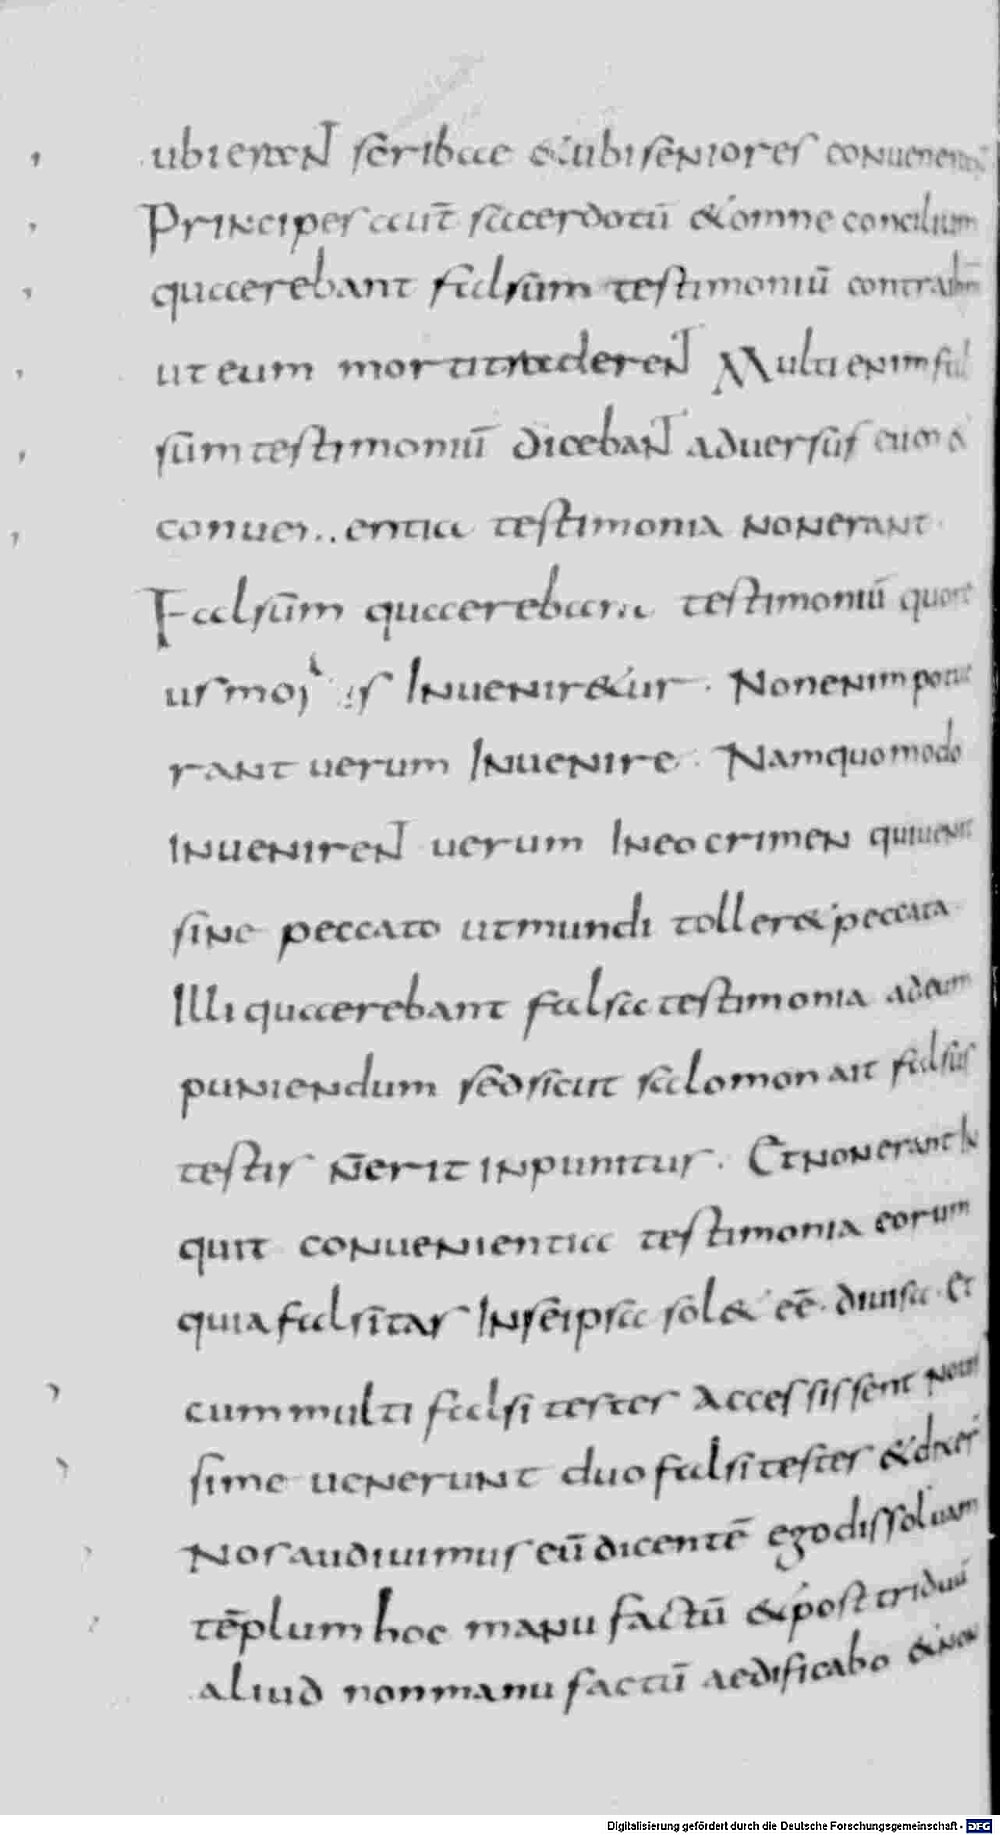 ubi erant scribae & ubi seniores conuenerant
Principes aut̄ sacerdotū & omne concilium
quaerebant falsum testimoniū contra ihm̄
ut eum morti traderent Multi enim fal
sum testimoniū dicebant aduersus eum &
conuenientia testimonia non erant
Falsum quaerebant testimoniū
us INuenir&ur. Non enim potue
rant uerum INuenire. Nam quomodo
inuenirent uerum IN eo crimen qui uenit
sine peccato ut mundi toller& peccata.
Illi quaerebant falsa testimonia ad eum
puniendum sed sicut salomon ait falsus
testis n̄ erit inpunitus. Et non erant IN
quit conuenientia testimonia eorum
quia falsitas IN se ipsa sol& eē diuisa. Et
cum multi falsi testes accessissent Noui
sime uenerunt duo falsi testes & dixer̄
Nos audiuimus eū dicentē ego dissoluam
tēplum hoc manu factū & post triduū
aliud non manu factū aedificabo & non
Digitalisierung gefördert durch die Deutsche Forschungsgemeinschaft - DFG